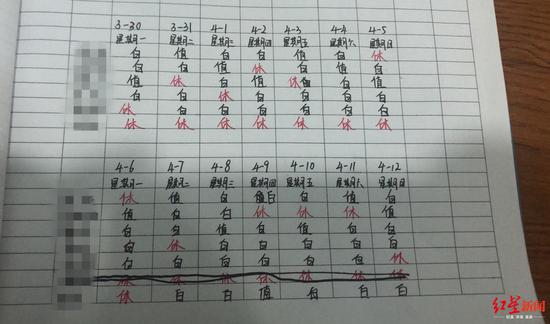 3-30 3-31 4-1 4-2 4-3 4-4 4-5
星期一 星期二 星期三 星期四 星期五 星期六 星期日
白 值 白 白 值 白 休
白 白 值 休 白 值 白
值 休 白 白 休 白 白
白 白 休 白 白 白 值
休 白 白 白 白 白 白
休 休 休 休 休 休 休
4-6 4-7 4-8 4-9 4-10 4-11 4-12
星期一 星期二 星期三 星期四 星期五 星期六 星期日
休 值 白 白 白 值 白
值 白 白 休 休 休 值
白 白 值 白 值 白 白
白 休 白 白 白 白 白
白 白 白 白 白 白 休
休 休 休 休 休 休 休
休 白 白 值 白 白 白
红星新闻